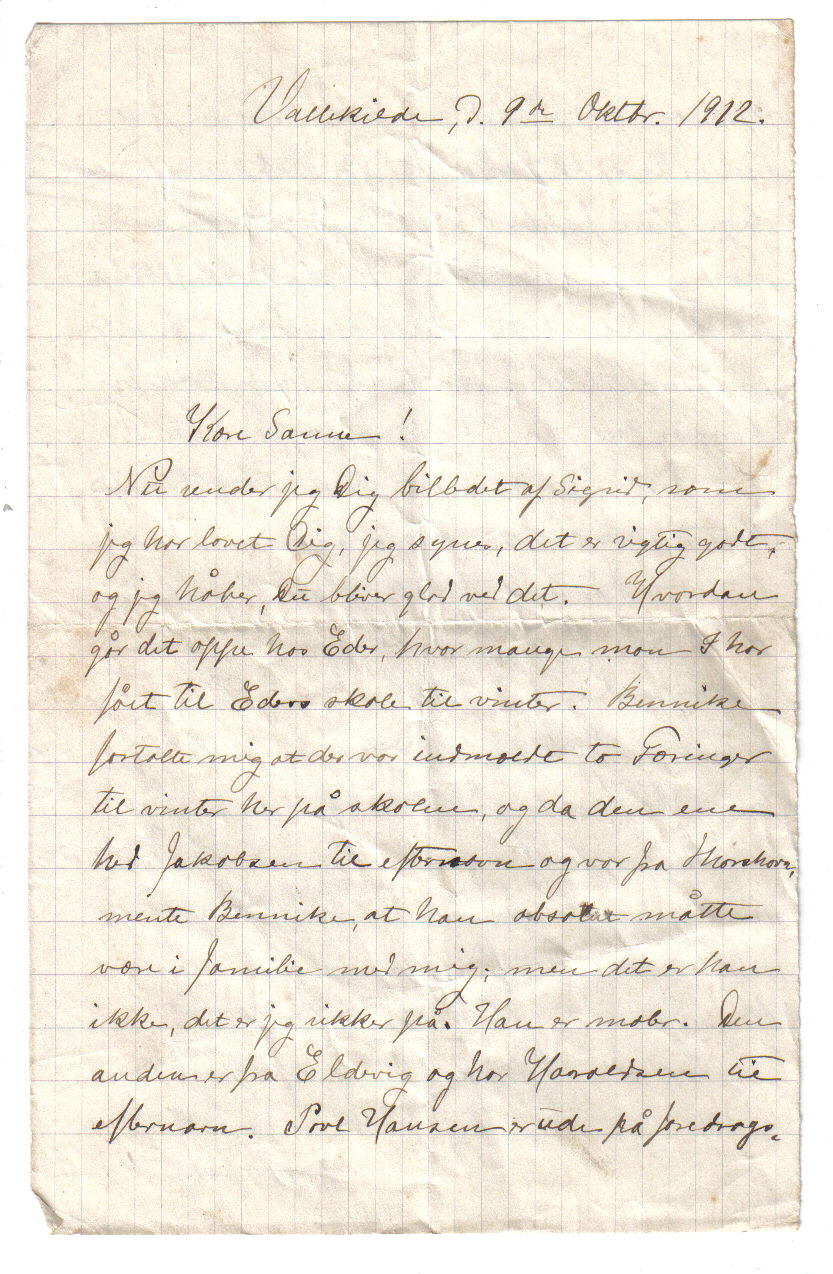 Vallekilde, d. 9de Oktbr. 1912.
Kære Sanne!
Nu sender jeg Dig billedet af Sigrid, som
jeg har lovet Dig, jeg synes, det er vigtig godt,
og jeg håber, Du bliver glad ved det. Hvordan
går det oppe hos Eder, hvor mange mon I har
fået til Eders skole til vinter. Bennike
fortalte mig at der var indmeldt to Færinger
til vinter her på skolen, og da den ene
hed Jakobsen til efternavn og var fra Thorshavn,
mente Bennike, at han absolut måtte
være i familie med mig; men det er han
ikke, det er jeg sikker på. Han er maler. Den
anden er fra Eldevig og har Haraldsen til
efternavn. Povl Hansen er ude på foredrags-